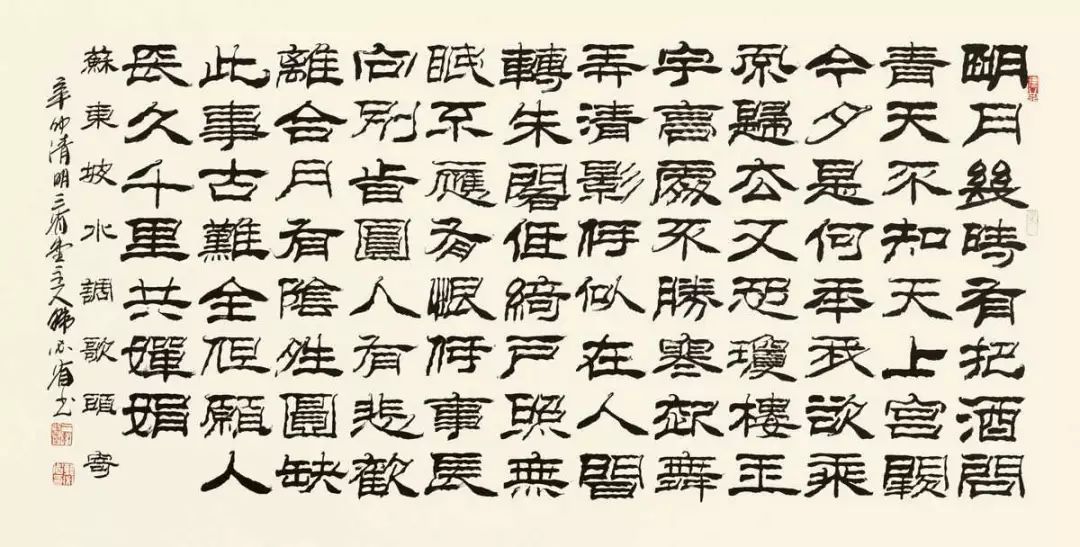 明月幾時有把酒問
青天不知天上宮闕
今夕是何年我欲乘
風歸去又恐瓊樓玉
宇高處不勝寒起舞
弄清影何似在人間
轉朱閣低綺戶照無
眠不應有恨何事長
向別旹圓人有悲歡
離合月有陰晴圓缺
此事古難全但願人
長久千里共嬋娟
蘇東坡水調歌頭
辛卯清明三省堂主人書